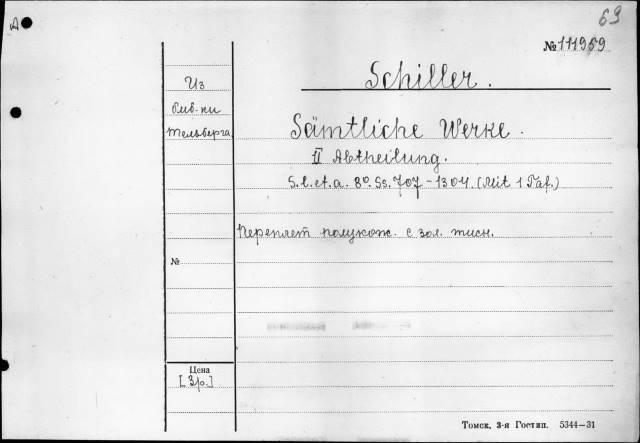 A
69
№ 111959
Schiller.
Из
биб-ки
Тельберга
Sämtliche Werke.
II Abtheilung.
S.l.et.a. 8º. Ss. 707-1304. (Mit 1 Taf.)
Переплет полукож. с зол. тисн.
№
Цена
[3р.]
Томск, 3-я Гостип. 5344—31